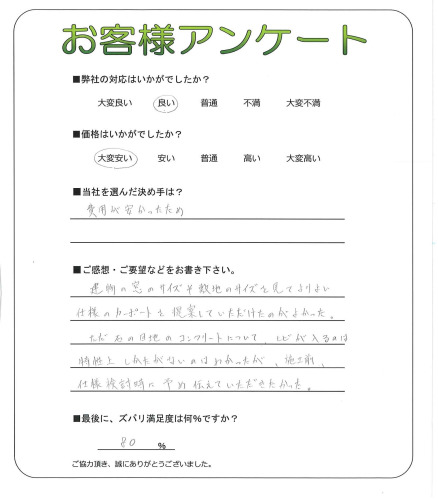 お客様アンケート
■弊社の対応はいかがでしたか？
大変良い　良い　普通　不満　大変不満
■価格はいかがでしたか？
大変安い　安い　普通　高い　大変高い
■当社を選んだ決め手は？
費用が安かったため
■ご感想・ご要望などをお書き下さい。
建物の窓のサイズや敷地のサイズを見てよりよい
仕様のカーポートを提案していただけたのがよかった。
ただ石の目地のコンクリートについて、ヒビが入るのは
特性上しかたがないのはわかったが、施工前、
仕様検討時に予め伝えていただきたかった。
■最後に、ズバリ満足度は何%ですか？
80 %
ご協力頂き、誠にありがとうございました。